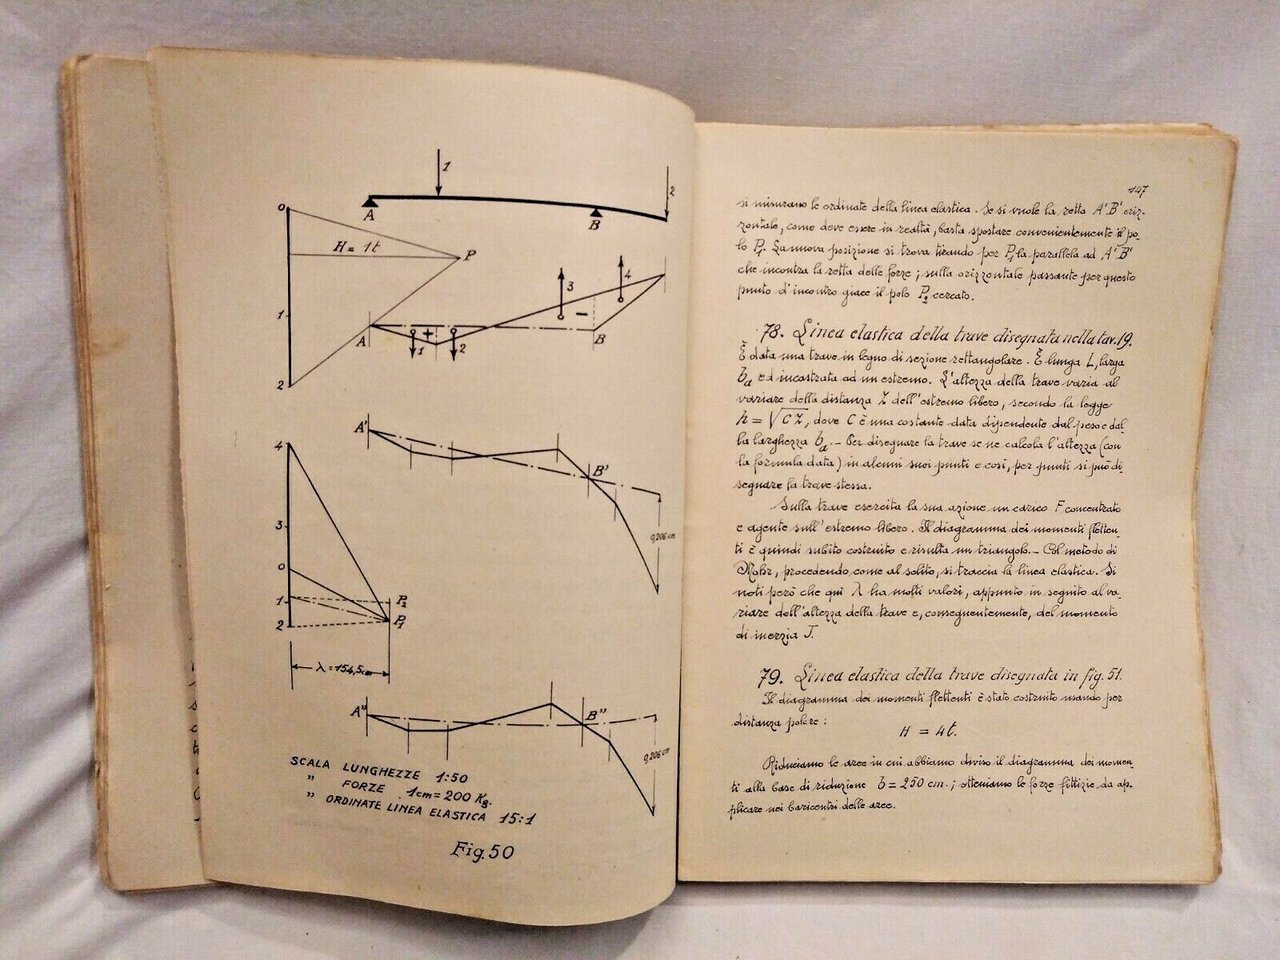 1
2
A
B
0
H = 1t
P
3
4
1
A
+
1
2
–
B
2
A'
4
B'
3
0,206 cm
0
1
P₂
2
P₁
λ = 154,5 cm
A"
B"
0,206 cm
SCALA LUNGHEZZE 1:50
" FORZE 1cm = 200 Kg.
" ORDINATE LINEA ELASTICA 15:1
Fig. 50
147
si misurano le ordinate della linea elastica. Se si vuole la retta A'B' oriz-
zontale, come deve essere in realtà, basta spostare convenientemente il po-
lo P₁. La nuova posizione si trova tirando per P₁ la parallela ad A'B'
che incontra la retta delle forze; sulla orizzontale passante per questo
punto d'incontro giace il polo P₂ cercato.
78. Linea elastica della trave disegnata nella tav. 19.
È data una trave in legno di sezione rettangolare. È lunga L, larga
bₐ ed incastrata ad un estremo. L'altezza della trave varia al
variare della distanza z dell'estremo libero, secondo la legge
h = √cz, dove c è una costante data dipendente dal peso e dal-
la larghezza bₐ. – Per disegnare la trave se ne calcola l'altezza (con
la formula data) in alcuni suoi punti e così, per punti si può di-
segnare la trave stessa.
Sulla trave esercita la sua azione un carico F concentrato
e agente sull'estremo libero. Il diagramma dei momenti fletten-
ti è quindi subito costruito e risulta un triangolo. – Col metodo di
Mohr, procedendo come al solito, si traccia la linea elastica. Si
noti però che qui λ ha molti valori, appunto in seguito al va-
riare dell'altezza della trave e, conseguentemente, del momento
di inerzia J.
79. Linea elastica della trave disegnata in fig. 51.
Il diagramma dei momenti flettenti è stato costruito usando per
distanza polare:
H = 4t.
Riduciamo le aree in cui abbiamo diviso il diagramma dei momen-
ti alla base di riduzione b = 250 cm.; otteniamo le forze fittizie da ap-
plicare nei baricentri delle aree.